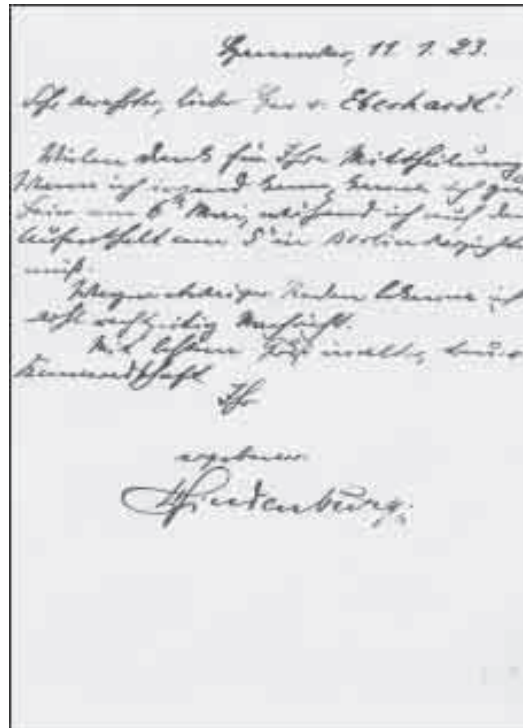 Hannover, 11. 1. 23.
Sehr verehrter, lieber Herr v. Eberhardt!
Vielen Dank für Ihre Mittheilung.
Wenn ich irgend kann, komme ich zur
Feier am 6ten Mai, während ich auf den
Aufenthalt am 5ten in Berlin verzichten
muß.
Wegen etwaiger Reden bekomme ich
wohl rechtzeitig Nachricht.
Mit bestem Gruß in alter, treuer
Kameradschaft
Ihr
ergebener
Hindenburg.